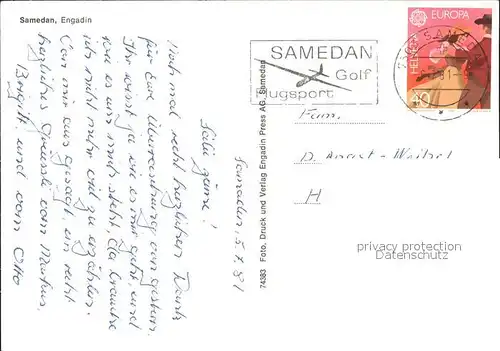 Samedan, Engadin
Samedan, 5.7.81
Salü zäme!
Noch mal recht herzlichen Dank
für Eure Überraschung von gestern.
Ihr wisst ja wie es mir geht, und
wie es uns mit steht, da brauche
ich nicht mehr viel zu erzählen.
Von mir aus gesagt, ein recht
herzliches von Markus,
Brigitt und vom Otto
74383 Foto, Druck und Verlag Engadin Press AG, Samedan
SAMEDAN
Golf
Flugsport
EUROPA
HELVETIA
80
SAMEDAN
81
Fam.
D.
H
privacy protection
watermark